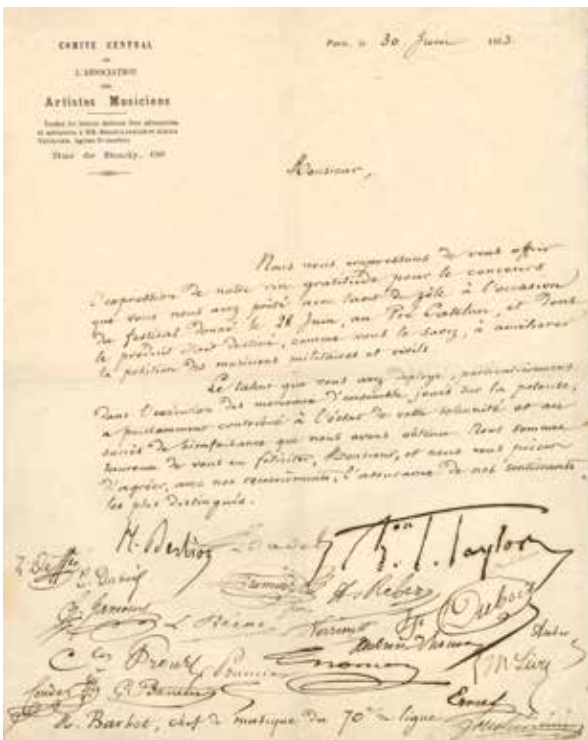 COMITÉ CENTRAL
DE
L'ASSOCIATION
DES
Artistes Musiciens
Rue de Bondy, 68
Paris, le 30 Juin
Monsieur,
Nous nous empressons de vous offrir
l'expression de notre vive gratitude pour le concours
que vous nous avez prêté avec tant de zèle à l'occasion
du festival donné le 28 Juin, au Pré Catelan, et dont
le produit était destiné, comme vous le savez, à améliorer
la position des musiciens militaires et civils.
Le talent que vous avez déployé, particulièrement
dans l'exécution des morceaux d'ensemble joués sur la pelouse,
a puissamment contribué à l'éclat de cette solennité et au
succès de bienfaisance que nous avons obtenu. Nous sommes
heureux de vous en féliciter, Monsieur, et nous vous prions
d'agréer, avec nos remerciements, l'assurance de nos sentiments
les plus distingués.
H. Berlioz
Bon I. Taylor
H. Reber
Dubois
E. Dubois
Jancourt
L. Besse
Verrimst
Ambroise Thomas
Prumier
H. Barbet, chef de musique du 70e de ligne